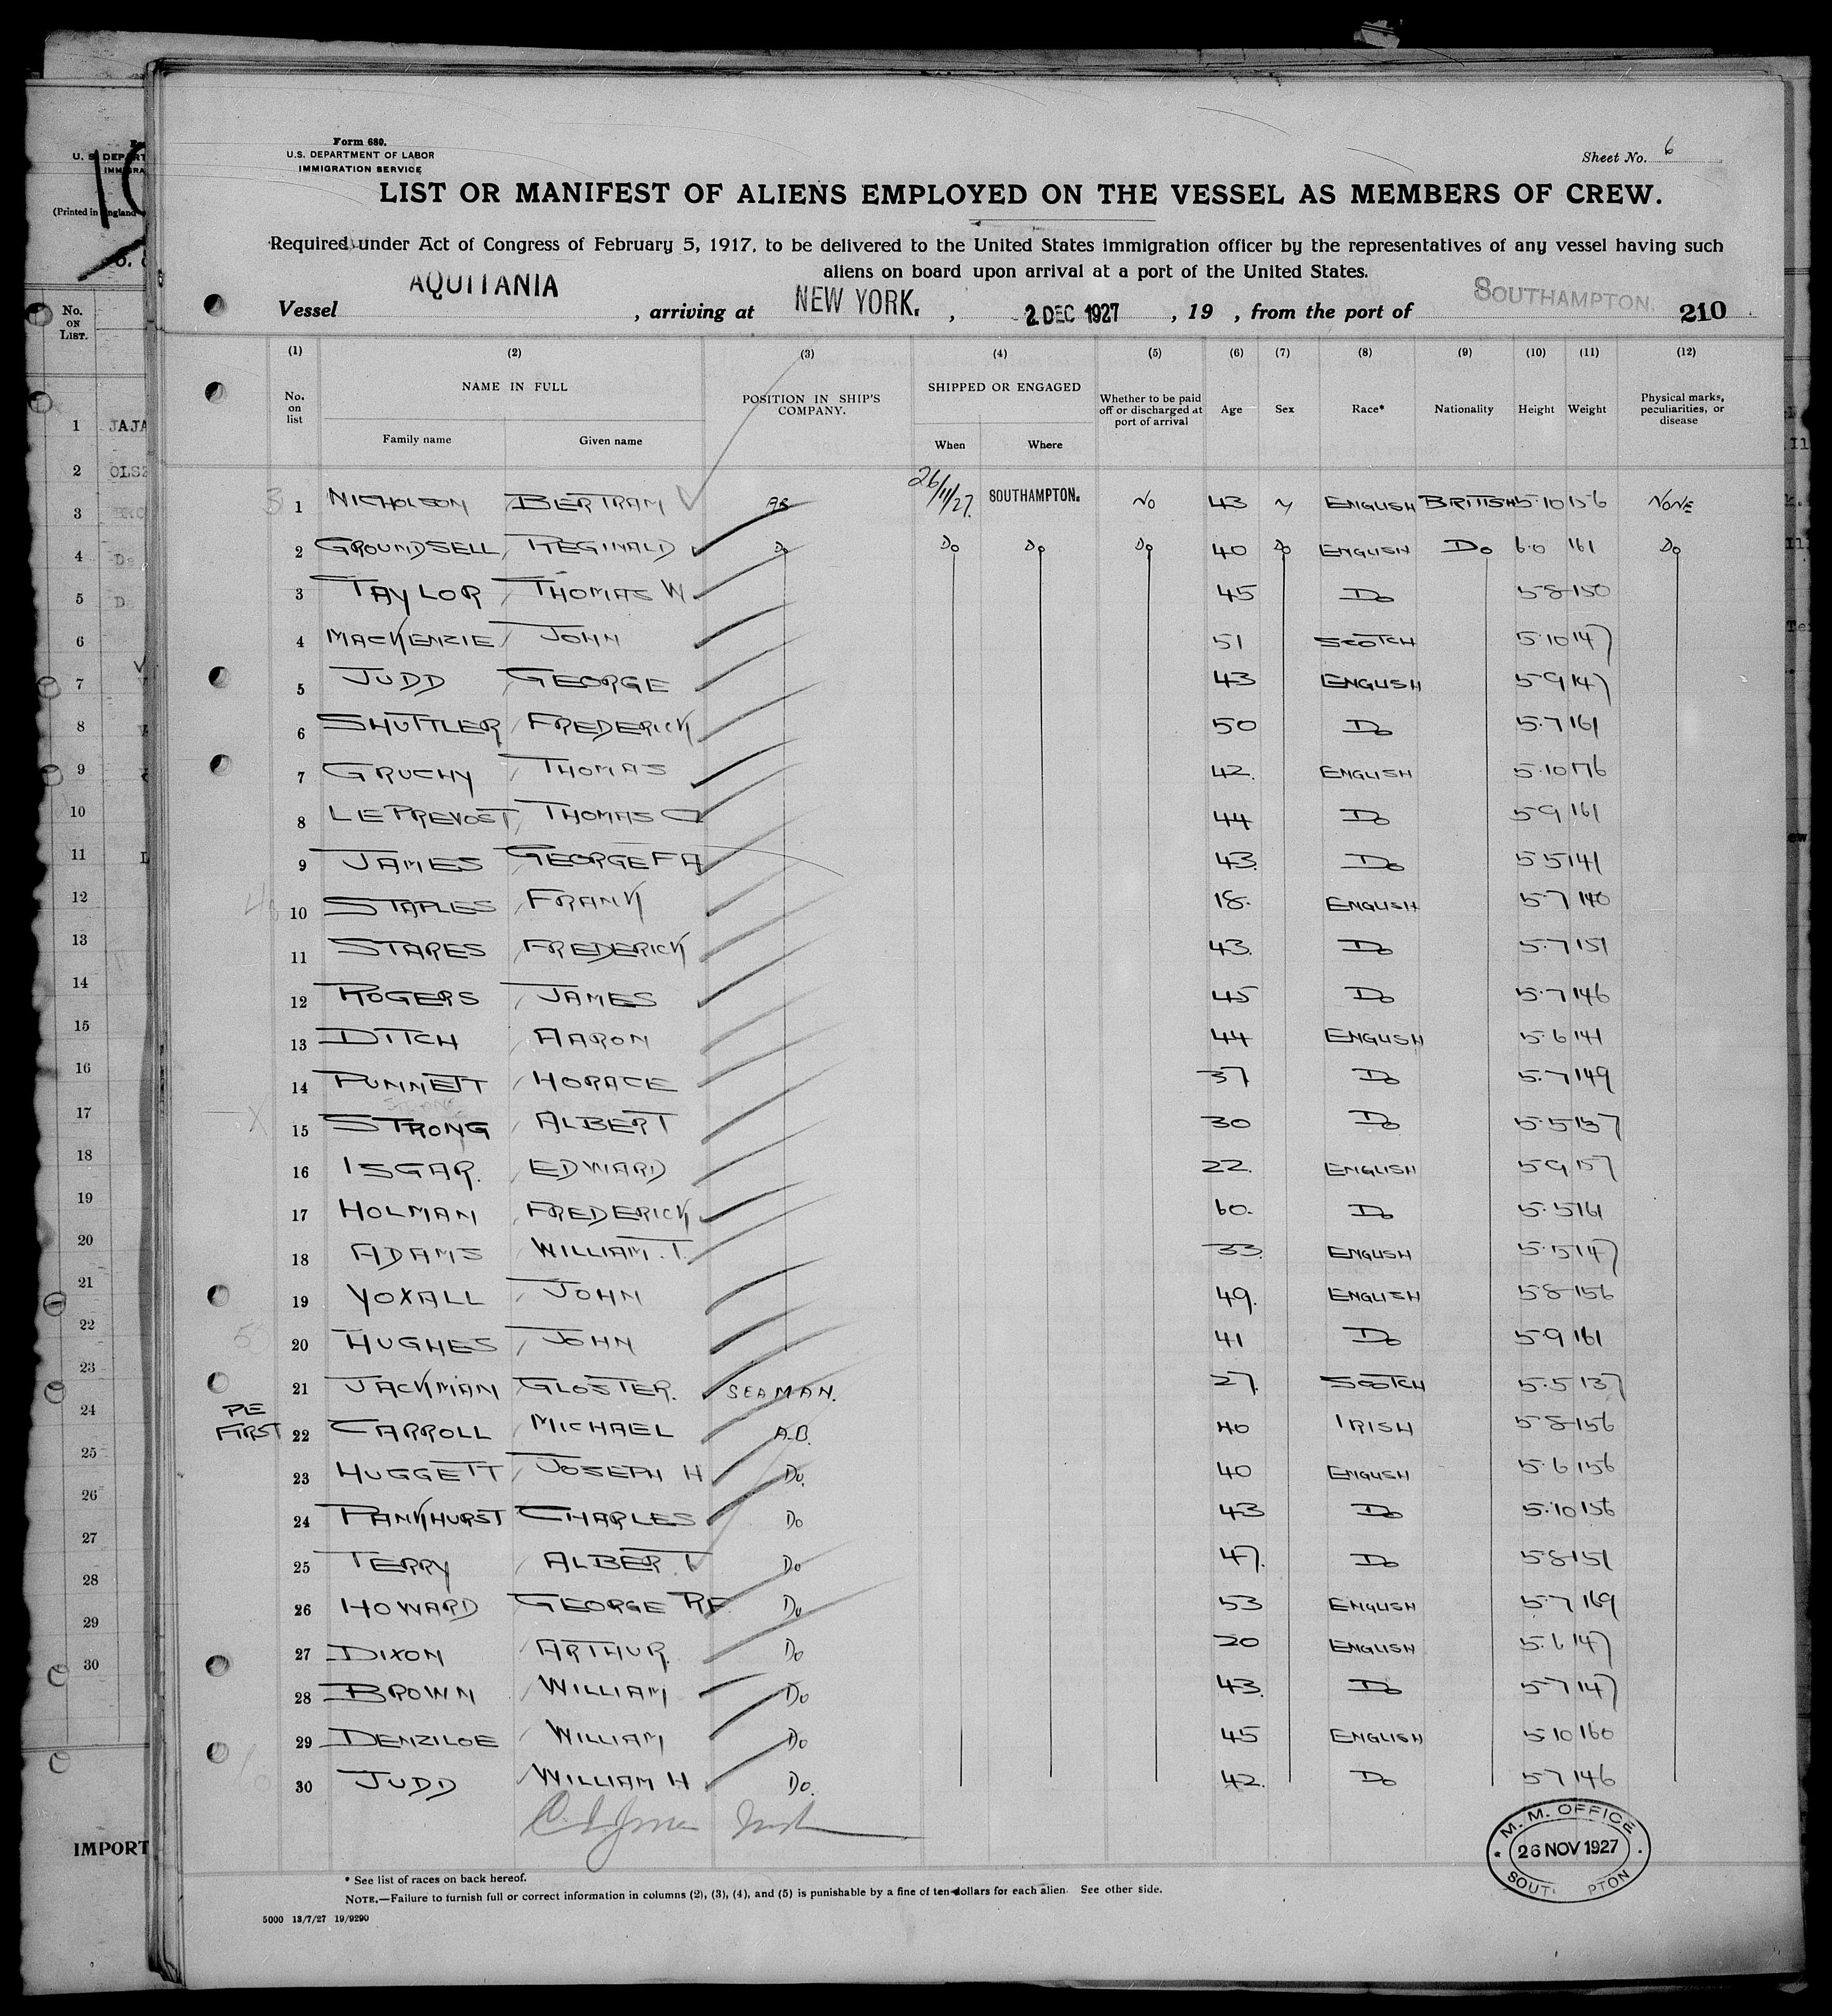 Form 680.
U.S. DEPARTMENT OF LABOR
IMMIGRATION SERVICE
Sheet No. 6
LIST OR MANIFEST OF ALIENS EMPLOYED ON THE VESSEL AS MEMBERS OF CREW.
Required under Act of Congress of February 5, 1917, to be delivered to the United States immigration officer by the representatives of any vessel having such
aliens on board upon arrival at a port of the United States.
Vessel AQUITANIA, arriving at NEW YORK., 2 DEC 1927, 19 , from the port of SOUTHAMPTON. 210
(1) (2) (3) (4) (5) (6) (7) (8) (9) (10) (11) (12)
No. on list NAME IN FULL Family name Given name POSITION IN SHIP'S COMPANY. SHIPPED OR ENGAGED When Where Whether to be paid off or discharged at port of arrival Age Sex Race* Nationality Height Weight Physical marks, peculiarities, or disease
1 NICHOLSON BERTRAM AB 26/11/27. SOUTHAMPTON. NO 43 ENGLISH BRITISH 5·10 156 NONE
2 GROUNDSELL REGINALD Do Do Do Do 40 Do ENGLISH Do 6·0 161 Do
3 TAYLOR THOMAS W 45 Do 5·8 150
4 MACKENZIE JOHN 51 SCOTCH 5·10 147
5 JUDD GEORGE 43 ENGLISH 5·9 147
6 SHUTTLER FREDERICK 50 Do 5·7 161
7 GRUCHY THOMAS 42. ENGLISH 5·10 176
8 LE PREVOST THOMAS C 44 Do 5·9 161
9 JAMES GEORGE F A 43. Do 5 5 141
10 STAPLES FRANK 18. ENGLISH 5·7 140
11 STARES FREDERICK 43. Do 5·7 151
12 ROGERS JAMES 45 Do 5·7 146
13 DITCH AARON 44 ENGLISH 5·6 141
14 PUNNETT HORACE 37 Do 5·7 149
15 STRONG ALBERT 30 Do 5·5 137
16 ISGAR. EDWARD 22. ENGLISH 5·9 157
17 HOLMAN FREDERICK 60. Do 5·5 161
18 ADAMS WILLIAM.T. 33. ENGLISH 5·5 147
19 YOXALL JOHN 49. ENGLISH 5·8 156
20 HUGHES JOHN 41 Do 5·9 161
21 JACKMAN GLOSTER. SEAMAN. 27. SCOTCH 5·5 137
PE
FIRST 22 CARROLL MICHAEL A.B. 40 IRISH 5·8 156
23 HUGGETT JOSEPH H Do. 40 ENGLISH 5·6 156
24 PANKHURST CHARLES Do 43 Do 5·10 156
25 TERRY ALBERT Do 47. Do 5·8 151
26 HOWARD GEORGE R F Do 53 ENGLISH 5·7 169
27 DIXON ARTHUR. Do 20 ENGLISH 5·6 147
28 BROWN WILLIAM Do 43. Do 5·7 147
29 DENZILOE WILLIAM Do 45 ENGLISH 5 10 160
30 JUDD WILLIAM H Do. 42. Do 5·7 146
M. M. OFFICE
26 NOV 1927
* See list of races on back hereof.
NOTE.—Failure to furnish full or correct information in columns (2), (3), (4), and (5) is punishable by a fine of ten dollars for each alien. See other side.
5000 13/7/27 19/9290
No. ON LIST.
1 JAJA
2 OLSZ
3
4 Do
5 Do
6
7
8
9
10
11
12
13
14
15
16
17
18
19
20
21
22
23
24
25
26
27
28
29
30
IMPORT